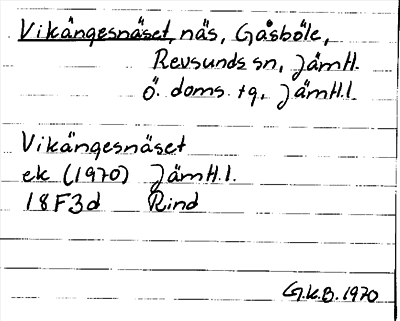 Vikängesnäset, näs, Gåsböle,
Revsunds sn, Jämtl.
Ö. doms. tg, Jämtl.l.
Vikängesnäset
ek (1970) Jämtl.l.
18F3d Rind
G.K.B. 1970